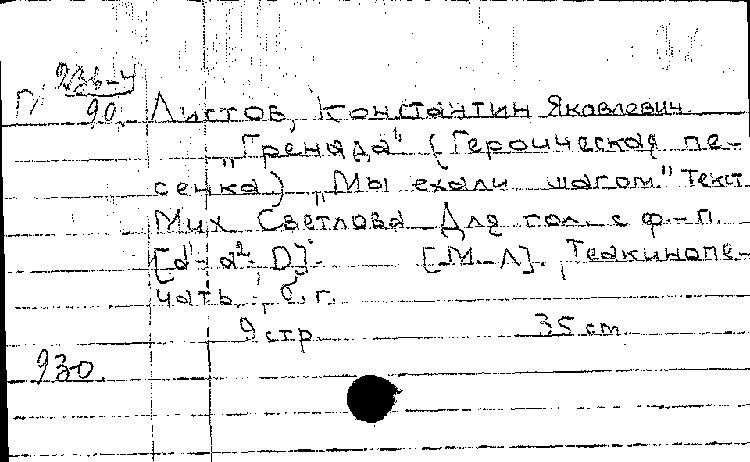 236-4
П 90. Листов, Константин Яковлевич
„Гренада" (Героическая пе-
сенка) „Мы ехали шагом." Текст
Мих Светлова Для гол. с ф.-п.
[d¹-a²-D]. [М-Л]. Теакинопе-
чать, б. г.
9 стр. 35 cm
930.